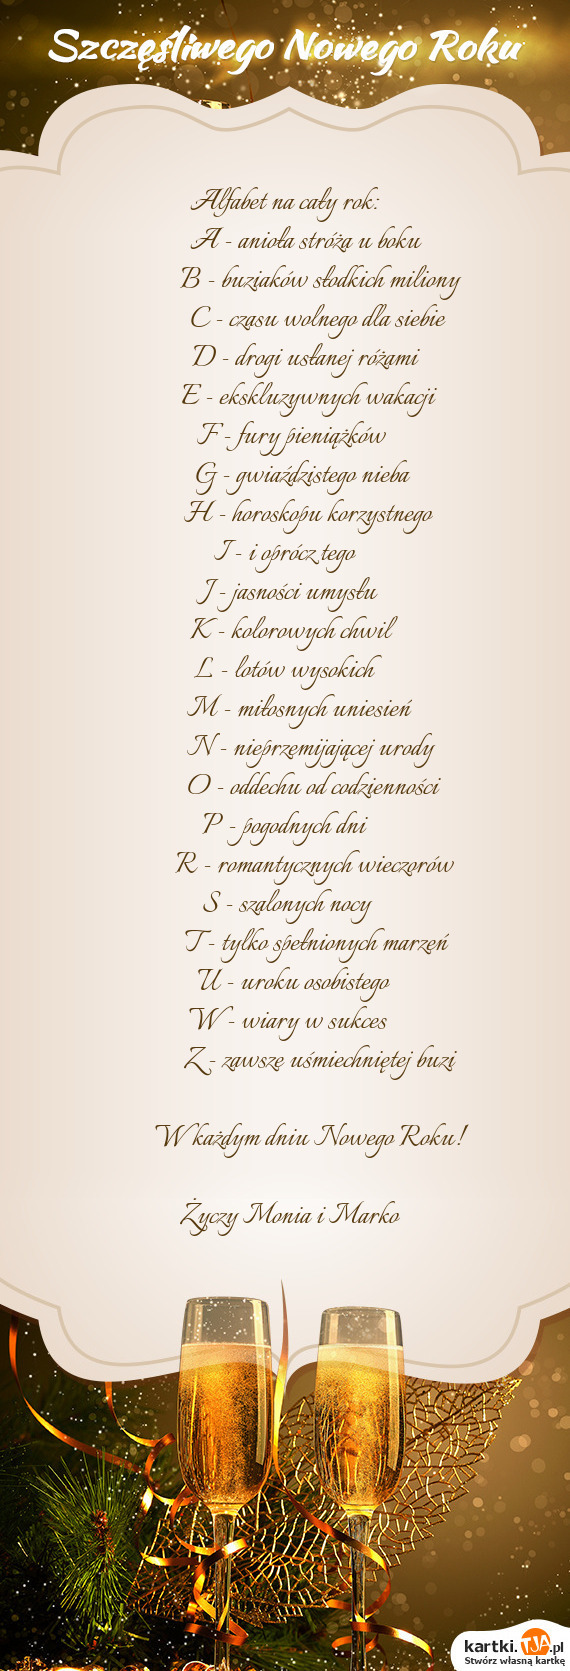 Szczęśliwego Nowego Roku
Alfabet na cały rok:
A - anioła stróża u boku
B - buziaków słodkich miliony
C - czasu wolnego dla siebie
D - drogi usłanej różami
E - ekskluzywnych wakacji
F - fury pieniążków
G - gwiaździstego nieba
H - horoskopu korzystnego
I - i oprócz tego
J - jasności umysłu
K - kolorowych chwil
L - lotów wysokich
M - miłosnych uniesień
N - nieprzemijającej urody
O - oddechu od codzienności
P - pogodnych dni
R - romantycznych wieczorów
S - szalonych nocy
T - tylko spełnionych marzeń
U - uroku osobistego
W - wiary w sukces
Z - zawsze uśmiechniętej buzi
W każdym dniu Nowego Roku!
Życzy Monia i Marko
kartki.TJA.pl
Stwórz własną kartkę